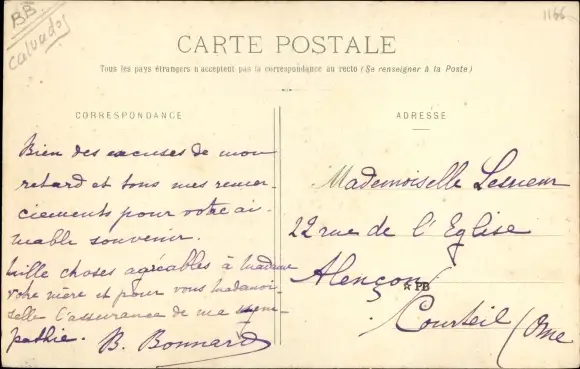 BB
Calvados
1166
CARTE POSTALE
Tous les pays étrangers n'acceptent pas la correspondance au recto (Se renseigner à la Poste)
CORRESPONDANCE
Bien des excuses de mon
retard et tous mes remer-
ciements pour votre ai-
mable souvenir.
Mille choses agréables à Madame
votre mère et pour vous Mademoi-
selle l'assurance de ma sym-
pathie. B. Bonnard
ADRESSE
Mademoiselle Lesueur
22 rue de l'Eglise
Alençon
☆PB
Courteil (Orne